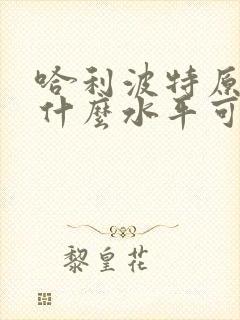 哈利波特原
什麼水平可
黎皇花